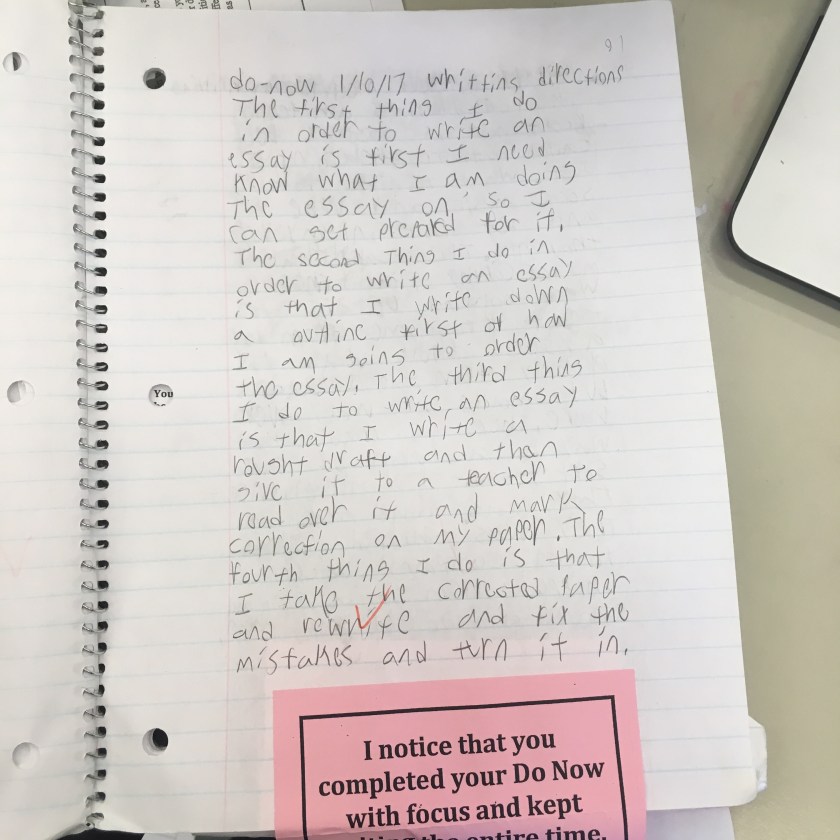 91
do-now 1/10/17 whitting directions
The first thing I do
in order to write an
essay is first I need
know what I am doing
The essay on so I
can get prepared for it.
The second Thing I do in
order to write an essay
is that I write down
a outline first of how
I am going to order
the essay. The third thing
I do to write an essay
is that I write a
rought draft and than
give it to a teacher to
read over it and mark
correction on my paper. The
fourth thing I do is that
I take the corrected paper
and rewrite and fix the
mistakes and turn it in.
You
I notice that you
completed your Do Now
with focus and kept
the entire time.